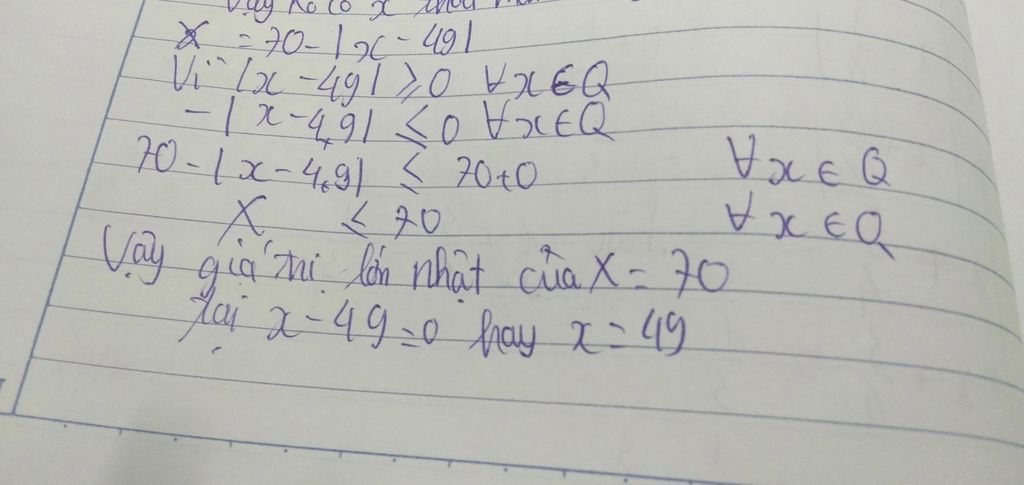 Vậy ko có x thoả
X = 70 - |x - 49|
Vì |x - 49| ≥ 0 ∀x ∈ Q
- | x - 4,9| ≤ 0 ∀x ∈ Q
70 - | x - 4,9| ≤ 70+0 ∀x ∈ Q
X ≤ 70 ∀x ∈ Q
Vậy giá trị lớn nhất của X = 70
tại x - 49 = 0 hay x = 49